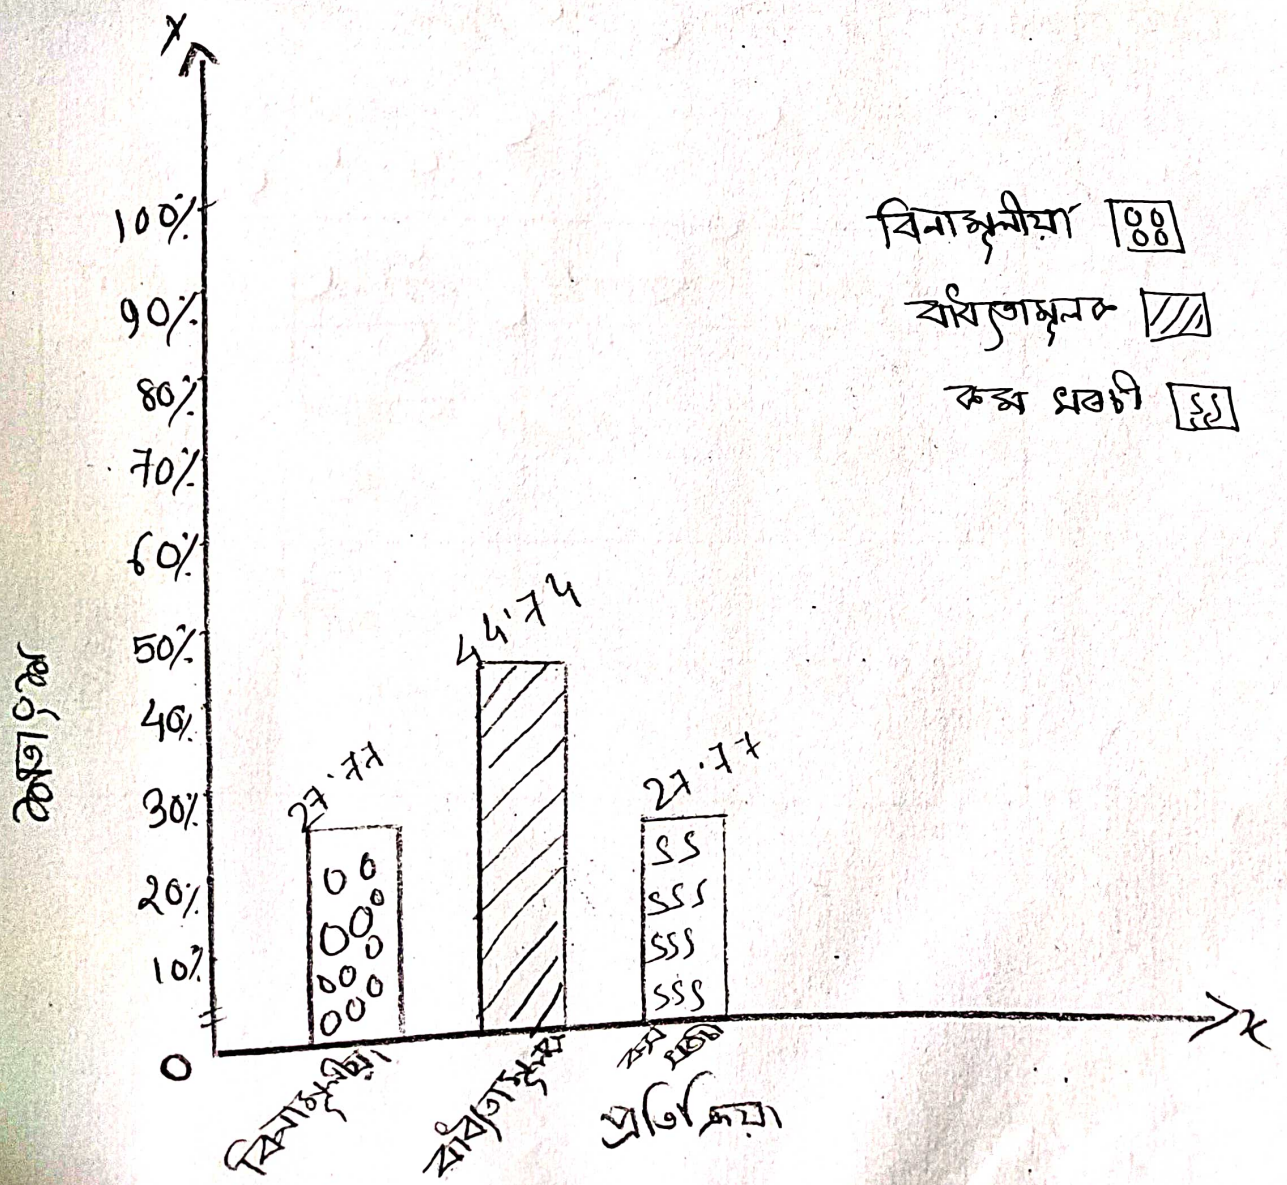 Y
100%
90%
80%
70%
60%
50%
40%
30%
20%
10%
0
শতাংশ
বিনামূলীয়া
বাধ্যতামূলক
কম খৰচী
27.77
44.74
27.77
বিনামূলীয়া
বাধ্যতামূলক
কম খৰচী
প্ৰতিক্ৰিয়া
x